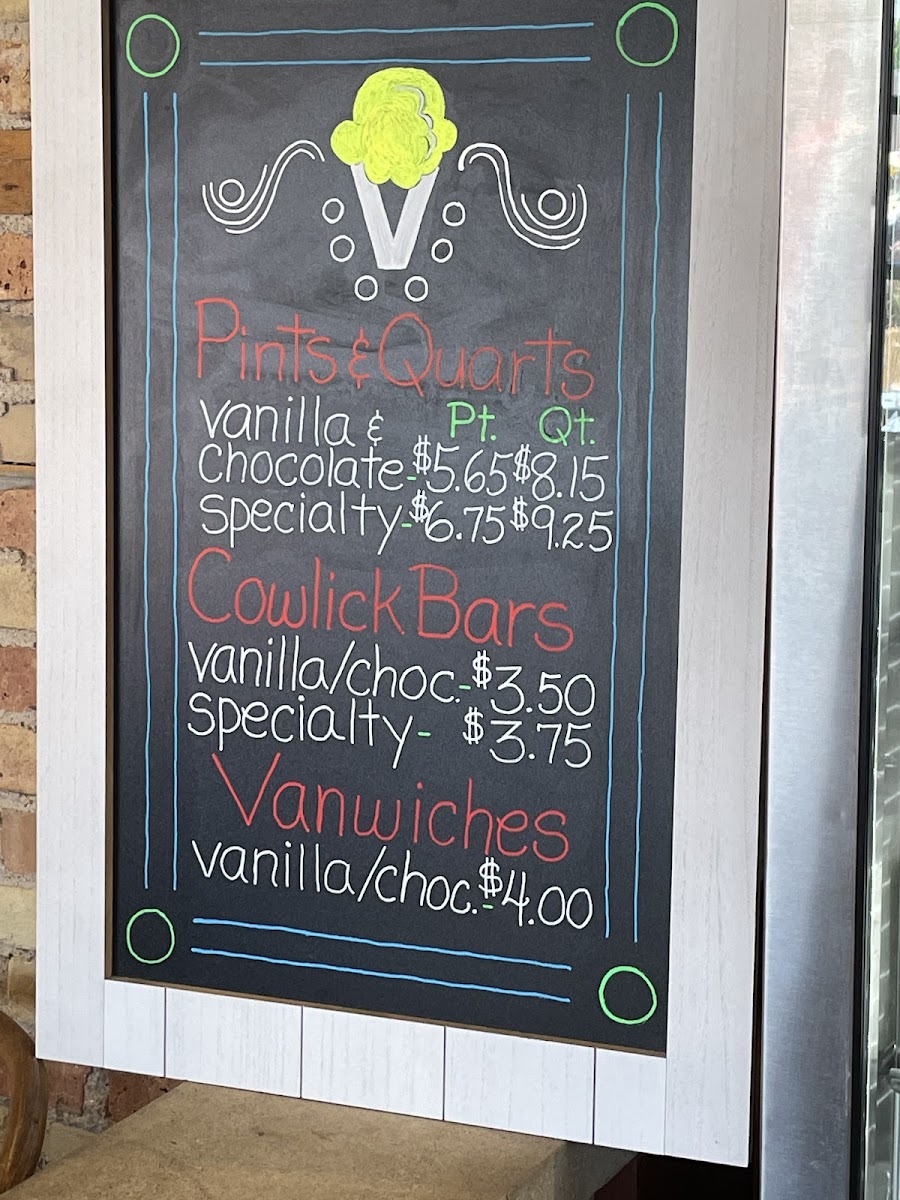 Pints & Quarts
vanilla & Pt. Qt.
chocolate-$5.65 $8.15
specialty-$6.75 $9.25
Cowlick Bars
vanilla/choc.-$3.50
specialty- $3.75
Vanwiches
vanilla/choc.-$4.00